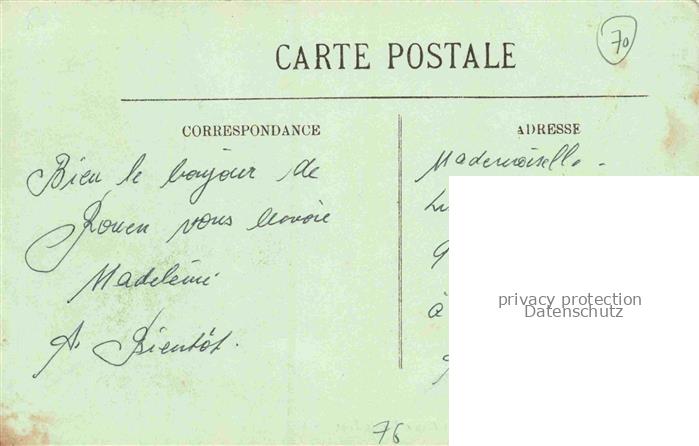 70
CARTE POSTALE
CORRESPONDANCE
ADRESSE
Bien le bonjour de
Rouen vous envoie
Madeleine
A Bientôt.
Mademoiselle
à
privacy protection
Datenschutz
76